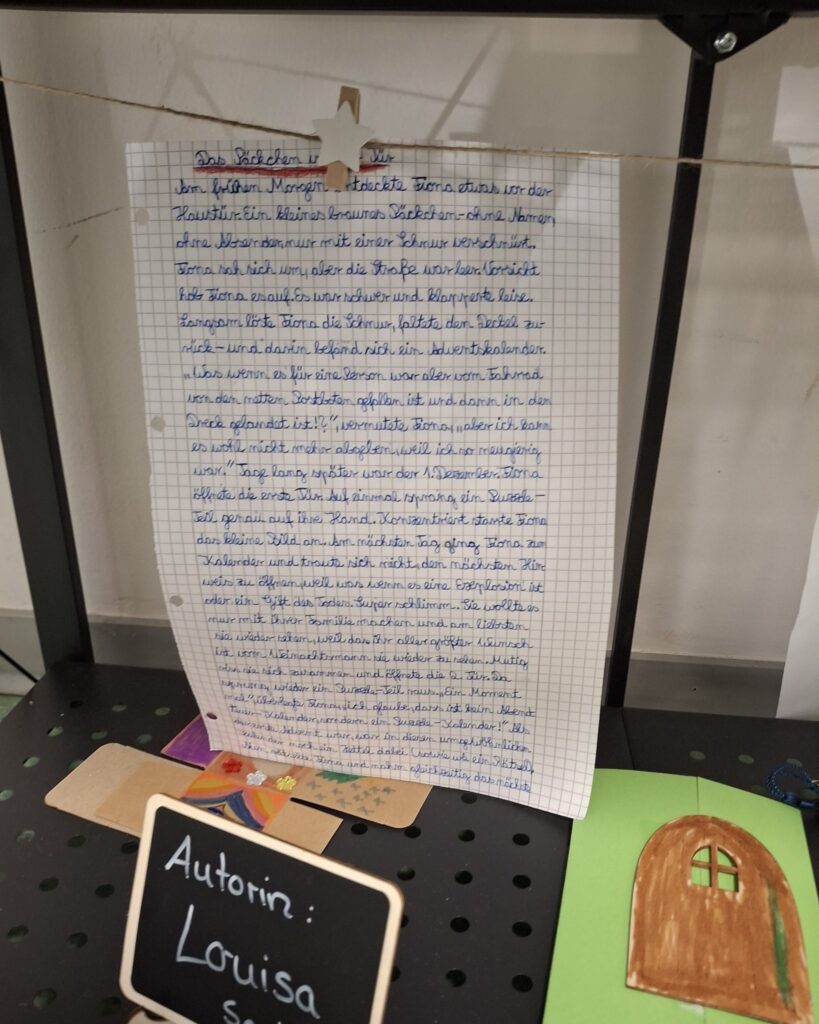 Das Päckchen Tür
Am frühen Morgen entdeckte Fiona etwas vor der
Haustür. Ein kleines braunes Päckchen – ohne Namen,
ohne Absender, nur mit einer Schnur verschnürt.
Fiona sah sich um, aber die Straße war leer. Vorsicht
hob Fiona es auf. Es war schwer und klapperte leise.
Langsam löste Fiona die Schnur, faltete den Deckel zu-
rück – und darin befand sich ein Adventskalender.
„Was wenn es für eine Person war aber vom Fahrrad
von den netten Postboten gefallen ist und dann in den
Dreck gelandet ist!?", vermutete Fiona, „aber ich kann
es wohl nicht mehr abgeben, weil ich so neugierig
war." Tage lang später war der 1. Dezember. Fiona
öffnete die erste Tür. Auf einmal sprang ein Puzzle-
Teil genau auf ihre Hand. Konzentriert starrte Fiona
das kleine Bild an. Am nächsten Tag ging Fiona zum
Kalender und traute sich nicht, den nächsten Hin-
weis zu öffnen, weil was wenn es eine Exsplosion ist
oder ein Gift des Todes. Super schlimm. Sie wollte es
nur mit ihrer Familie machen und am liebsten
sie wieder sehen, weil das ihr aller größter Wunsch
ist vom Weinachtsmann sie wieder zu sehen. Mutig
riss sie sich zusammen und öffnete die 2. Tür. Da
sprang wieder ein Puzzle-Teil raus. „Ein Moment
mal", überlegte Fiona, „ich glaube, dass ist kein Abend
teuer-Kalender, sondern ein Puzzle-Kalender!" Als
Advent war, war in diesen umgewöhnlichen
Kalender noch ein Zettel dabei. wie ein Rätsel.
Fiona und nahm gleichzeitig das nächste
Autorin:
Louisa